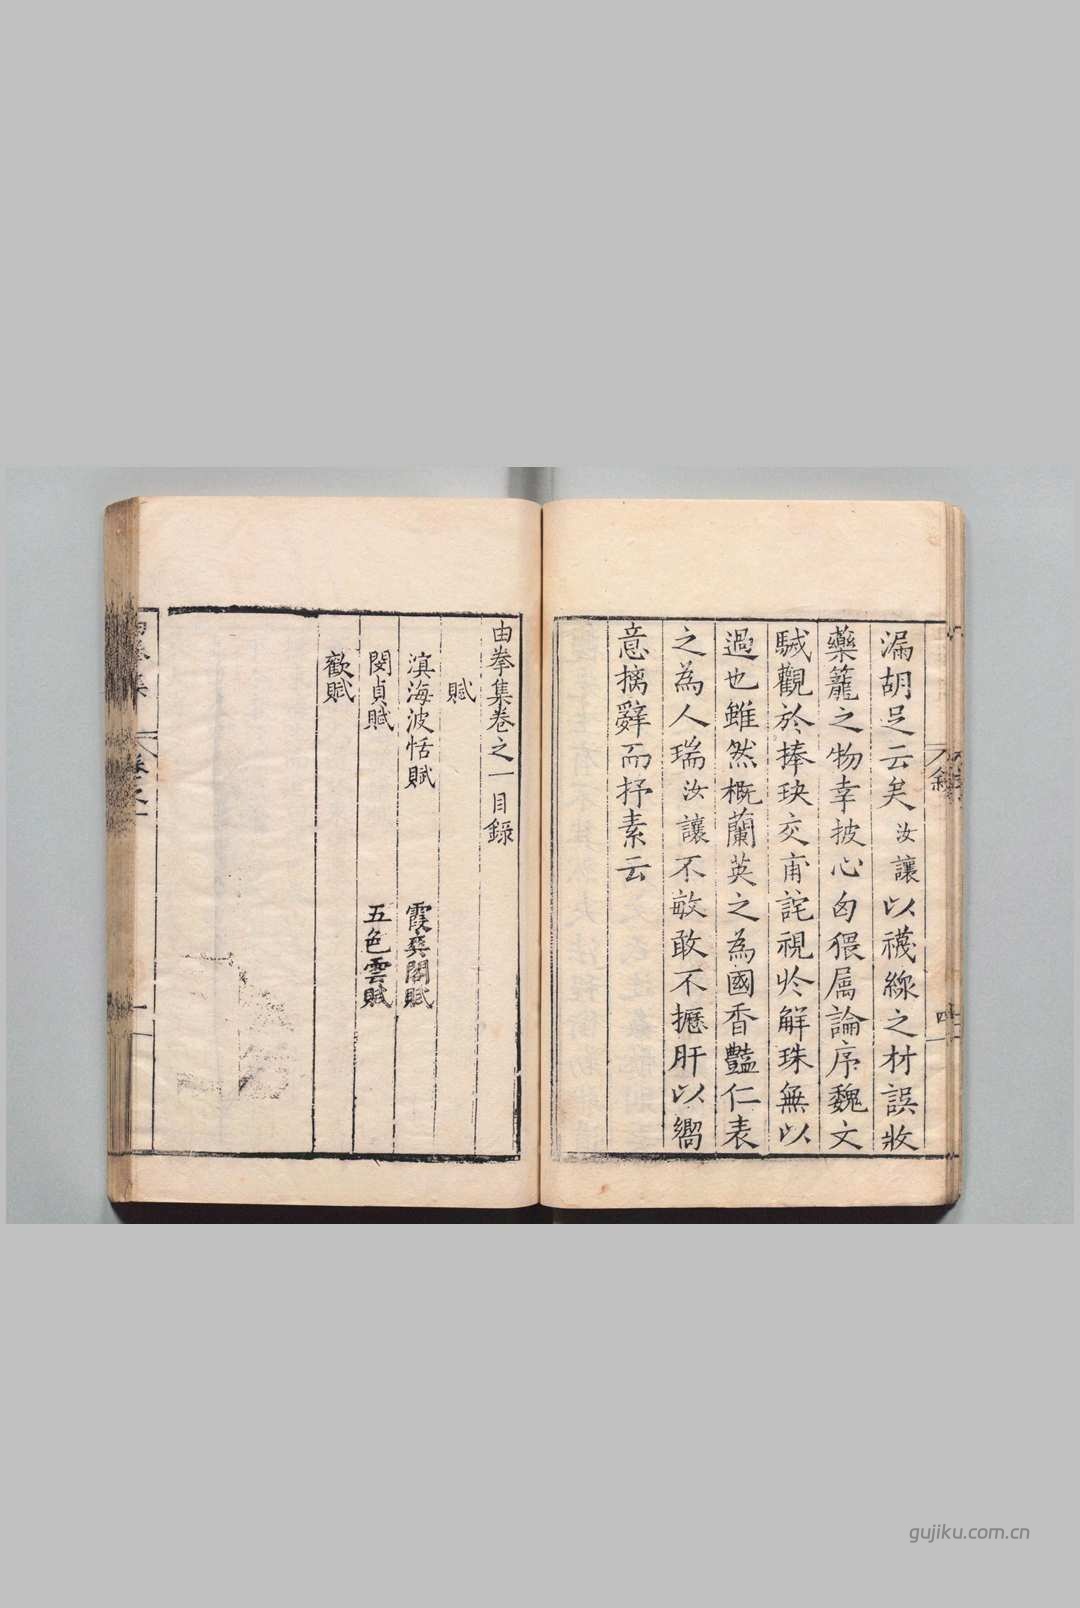 漏胡足云矣汝讓以襪線之材誤收
藥籠之物幸披心匈猥屬論序魏文
駴觀於捧玦交甫詫視於解珠無以
過也雖然概蘭英之為國香豔仁表
之為人瑞汝讓不敏敢不攄肝以嚮
意摛辭而抒素云
由拳集卷之一目錄
賦
滇海波恬賦 霞爽閣賦
閔貞賦 五色雲賦
歡賦
gujiku.com.cn